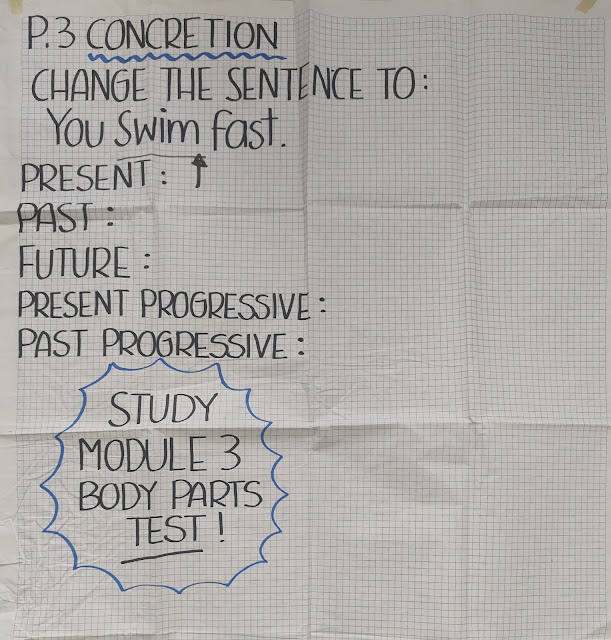 P.3 CONCRETION
CHANGE THE SENTENCE TO:
You Swim fast.
PRESENT:
PAST:
FUTURE:
PRESENT PROGRESSIVE:
PAST PROGRESSIVE:
STUDY
MODULE 3
BODY PARTS
TEST!